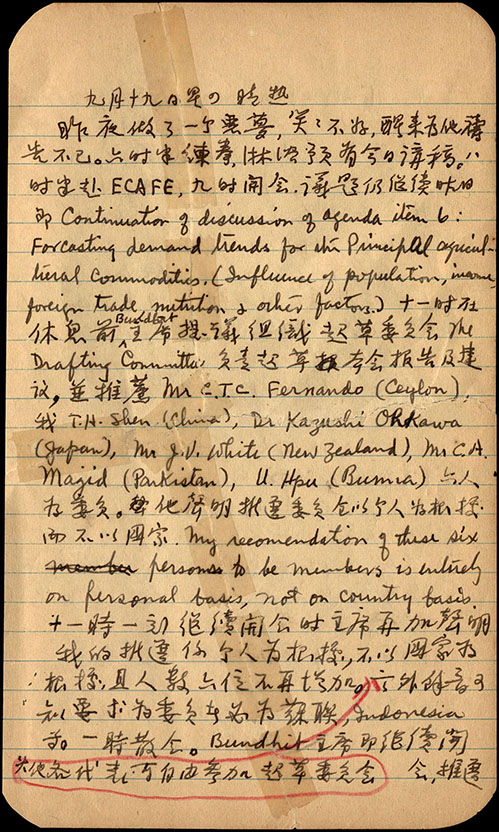 九月十九日 早の 晴热
昨夜做了一个恶夢, 笑笑不好, 醒来为他禱
告不已。六时半練拳, 淋浴预備今日講稿。八
时半赴 ECAFE, 九时開会. 議题仍继续昨日
即 Continuation of discussion of agenda item 6:
Forcasting demand trends for the Principal agricul-
tural Commodities. (Influence of population, income,
foreign trade, nutrition & other factors.) 十一时在
休息前 Bundhit 主席提議组织起草委員会 The
Drafting Committee 負责起草 本会报告及建
议, 並推薦 Mr C.T.C. Fernando (Ceylon),
我 T.H. Shen (China), Dr. Kazushi Ohkawa
(Japan), Mr J.V. White (New Zealand), Mr C.A.
Majid (Parkistan), U. Hpu (Burma) 六人
为委员。 他聲明推選委員会以个人为根據
而不以國家. My recomendation of these six
member persons to be members is entirely
on personal basis, not on country basis.
十一時一刻继續開会时主席再加聲明
我的推選係个人为根據, 不以國家为
根據, 且人数六位不再增加。
要求为委员者为蘇联, Indonesia
一時散会。 Bundhit 主席即继續開
会, 推選
其他各代表可自由参加起草委员会